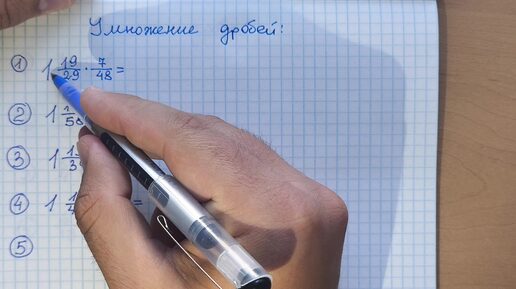 Умножение дробей:
① 1 19/29 · 7/48 =
② 1
③ 1
④ 1 =
⑤